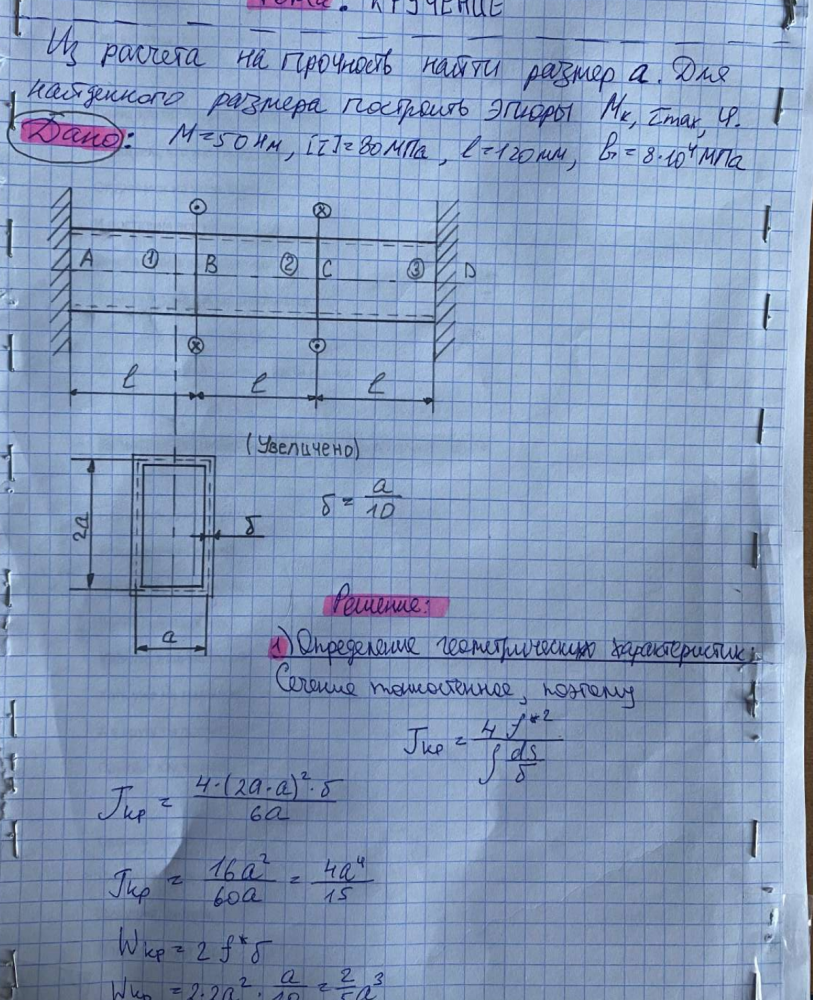 Тема: КРУЧЕНИЕ
Из расчета на прочность найти размер a. Для
найденного размера построить эпюры Mк, τmax, φ.
Дано: M=50 Нм, [τ]=80МПа, l=120мм, G=8·10⁴МПа
A ① B ② C ③ D
l l l
(Увеличено)
2a
δ
δ = a/10
a
Решение:
1) Определение геометрических характеристик:
Сечение тонкостенное, поэтому
Jкр = 4f*²/∫ds/δ
Jкр = 4·(2a·a)²·δ/6a
Jкр = 16a²/60a = 4a⁴/15
Wкр = 2f*δ
Wкр = 2·2a²·a/10 = 2/5a³